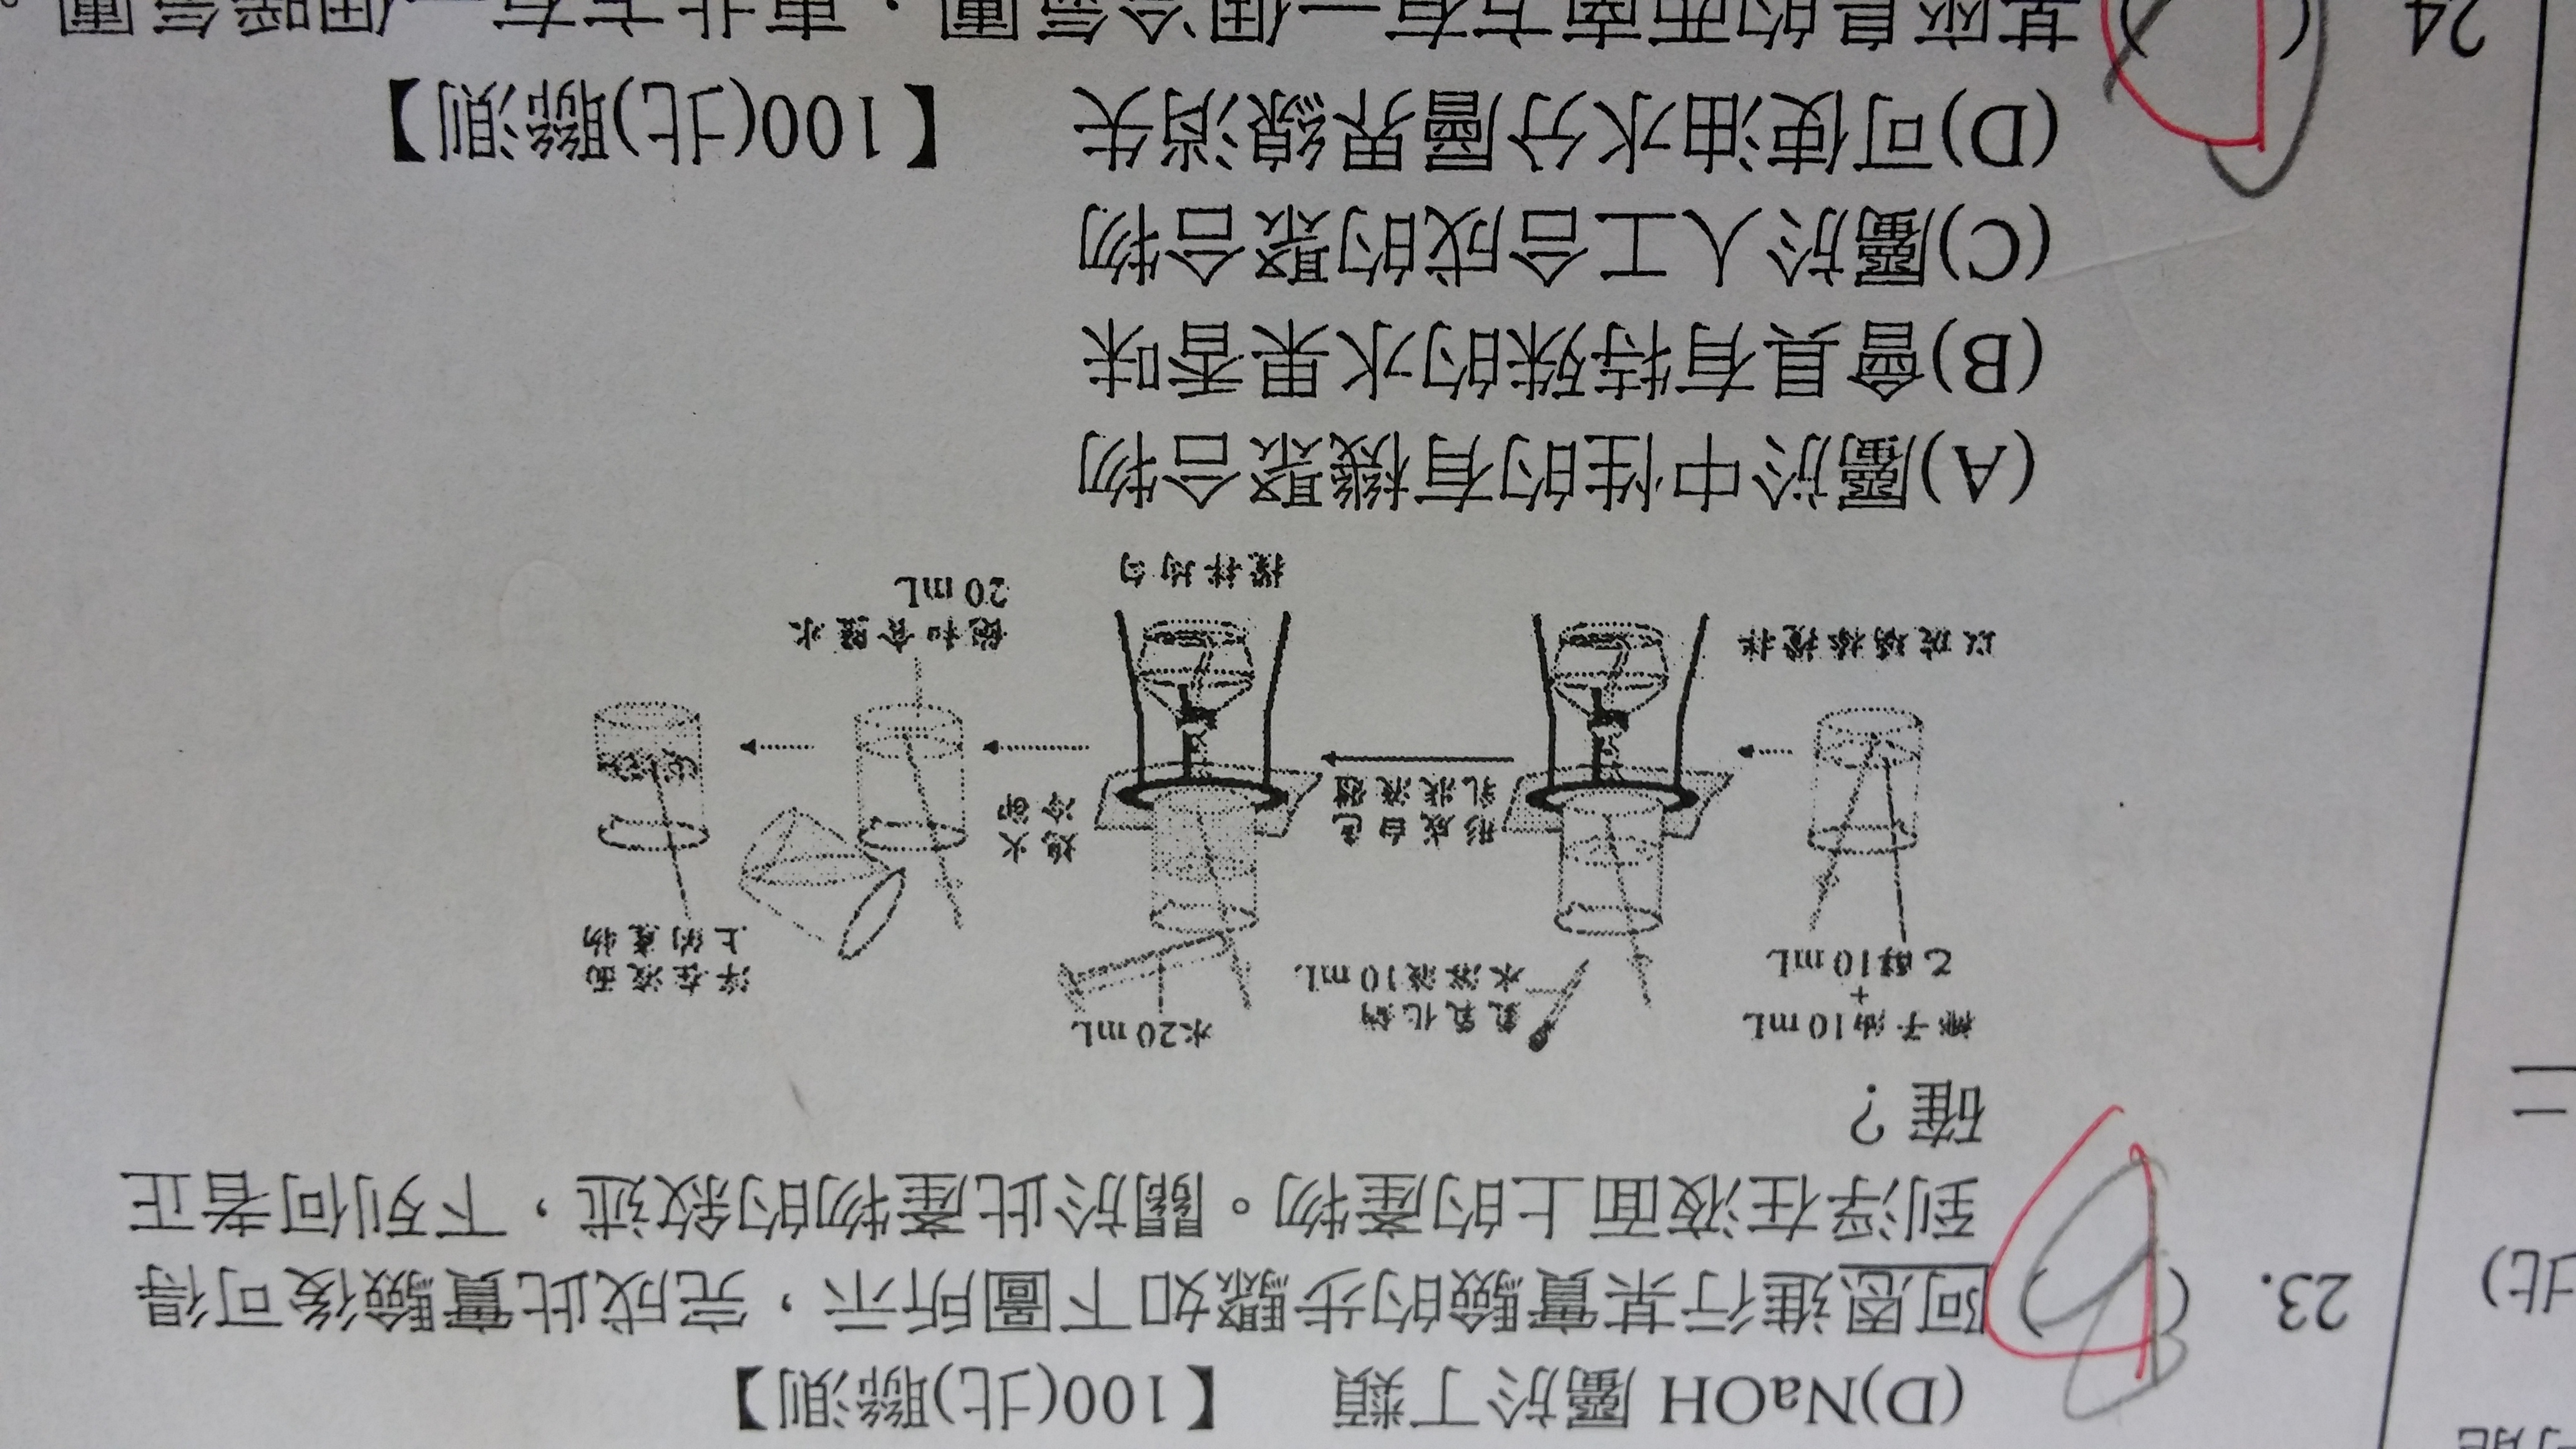 (D)NaOH 屬於丁類 【100(北)聯測】
( ) 23. 阿恩進行某實驗的步驟如下圖所示，完成此實驗後可得
到浮在液面上的產物。關於此產物的敘述，下列何者正
確？
椰子油10 mL
+
乙醇10 mL
以玻璃棒攪拌
氫氧化鈉
水溶液10 mL
形成白色
乳狀液體
水20 mL
攪拌均勻
熄火
冷卻
飽和食鹽水
20 mL
浮在液面
上的產物
(A)屬於中性的有機聚合物
(B)會具有特殊的水果香味
(C)屬於人工合成的聚合物
(D)可使油水分層界線消失 【100(北)聯測】
( ) 24 某座島的西南方有一個冷氣團，東北方有一個暖氣團。
北)
二